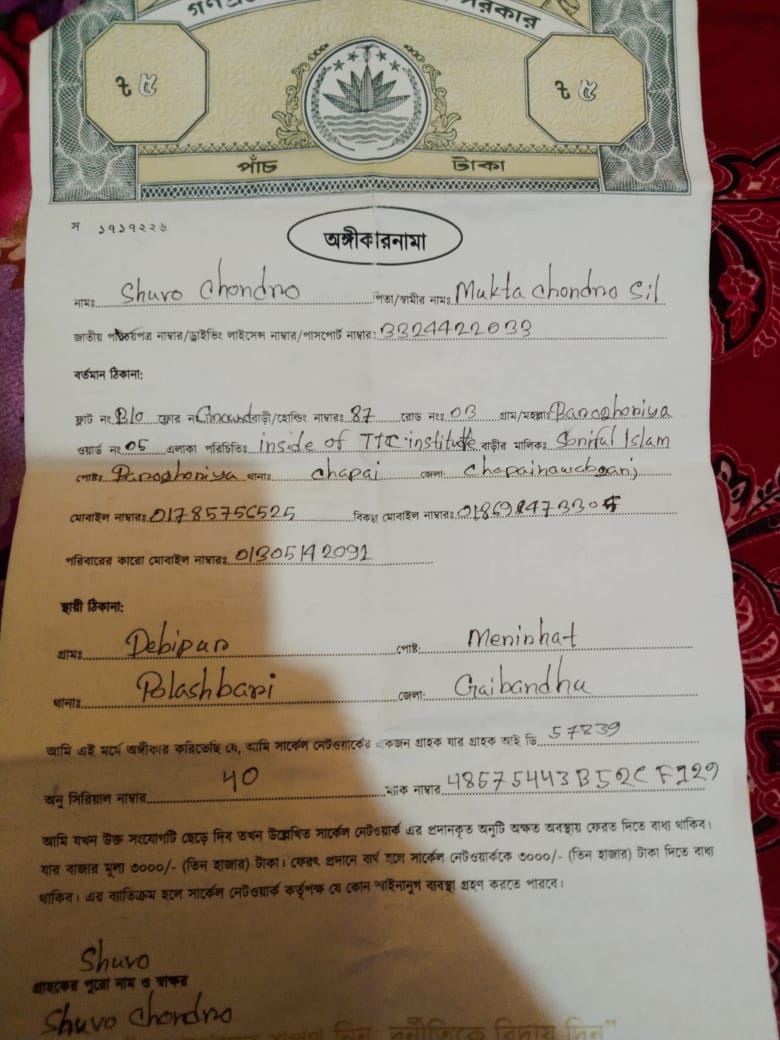 সরকার
৳ ৫ ৳ ৫
পাঁচ টাকা
স ১৯১৭২২৬
অঙ্গীকারনামা
নামঃ Shuvo Chondro পিতা/স্বামীর নামঃ Mukta Chondro Sil
জাতীয় পরিচয়পত্র নাম্বার/ড্রাইভিং লাইসেন্স নাম্বার/পাসপোর্ট নাম্বারঃ 3324422033
বর্তমান ঠিকানা:
ফ্লাট নং B/0 ফ্লোর নং Ground বাড়ী/হোল্ডিং নাম্বারঃ 87 রোড নংঃ 03 গ্রাম/মহল্লাঃ
ওয়ার্ড নং 05 এলাকা পরিচিতিঃ inside of TTC institute বাড়ীর মালিকঃ Soniful Islam
পোষ্টঃ থানাঃ Chapai জেলা: Chapainawabganj
মোবাইল নাম্বারঃ 01785756525 বিকল্প মোবাইল নাম্বারঃ
পরিবারের কারো মোবাইল নাম্বারঃ 01305142091
স্থায়ী ঠিকানা:
গ্রামঃ Debipur পোষ্ট: Merirhat
থানাঃ Polashbari জেলা: Gaibandha
আমি এই মর্মে অঙ্গীকার করিতেছি যে, আমি সার্কেল নেটওয়ার্কের একজন গ্রাহক যার গ্রাহক আই ডি 57239
অনু সিরিয়াল নাম্বার 40 ম্যাক নাম্বার 48575443B52CF129
আমি যখন উক্ত সংযোগটি ছেড়ে দিব তখন উল্লেখিত সার্কেল নেটওয়ার্ক এর প্রদানকৃত অনুটি অক্ষত অবস্থায় ফেরত দিতে বাধ্য থাকিব।
যার বাজার মূল্য ৩০০০/- (তিন হাজার) টাকা। ফেরৎ প্রদানে ব্যর্থ হলে সার্কেল নেটওয়ার্ককে ৩০০০/- (তিন হাজার) টাকা দিতে বাধ্য
থাকিব। এর ব্যতিক্রম হলে সার্কেল নেটওয়ার্ক কর্তৃপক্ষ যে কোন আইনানুগ ব্যবস্থা গ্রহণ করতে পারবে।
Shuvo
গ্রাহকের পুরো নাম ও স্বাক্ষর
Shuvo Chondro
নিন, দুর্নীতিকে বিদায় দিন"